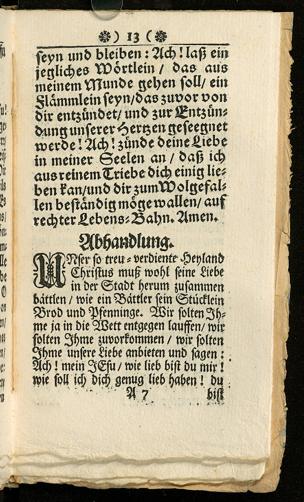 ❀) 13 (❀
seyn und bleiben : Ach! laß ein
jegliches Wörtlein / das aus
meinem Munde gehen soll / ein
Flämmlein seyn / das zuvor von
dir entzündet / und zur Entzün-
dung unserer Hertzen geseegnet
werde! Ach! zünde deine Liebe
in meiner Seelen an / daß ich
aus reinem Triebe dich einig lie-
ben kan / und dir zum Wolgefal-
len beständig möge wallen / auf
rechter Lebens-Bahn. Amen.
Abhandlung.
UNser so treu-verdiente Heyland
Christus muß wohl seine Liebe
in der Stadt herum zusammen
bättlen / wie ein Bättler sein Stücklein
Brod und Pfenninge. Wir solten Ih-
me ja in die Wett entgegen lauffen / wir
solten Ihme zuvorkommen / wir solten
Ihme unsere Liebe anbieten und sagen :
Ach! mein JEsu / wie lieb bist du mir!
wie soll ich dich genug lieb haben! du
A 7 bist